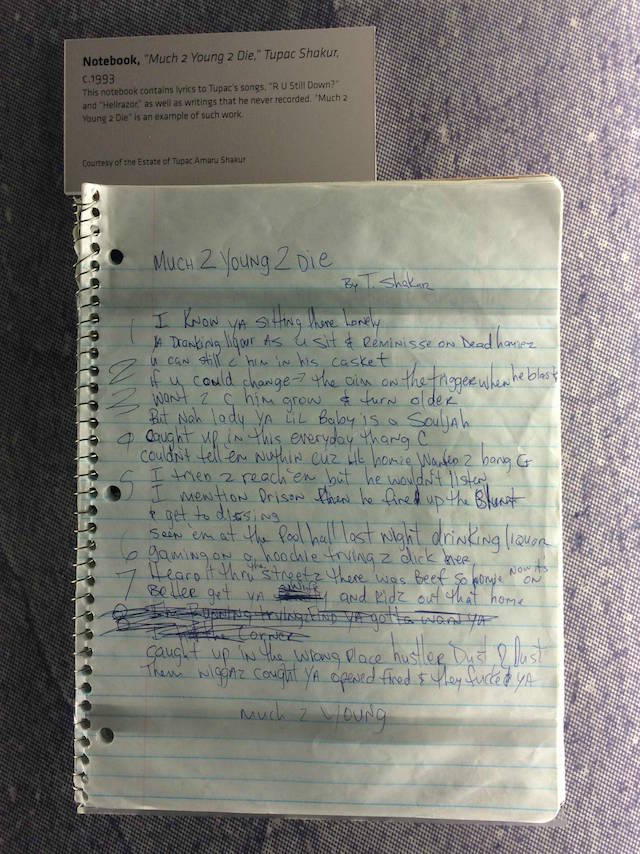 Notebook, "Much 2 Young 2 Die," Tupac Shakur,
c.1993
This notebook contains lyrics to Tupac's songs, "R U Still Down?"
and "Hellrazor," as well as writings that he never recorded. "Much 2
Young 2 Die" is an example of such work.
Courtesy of the Estate of Tupac Amaru Shakur
Much 2 Young 2 Die
By T. Shakur
1 I Know YA sitting there Lonely
A Dranking liquor As U sit & Reminisse on Dead homiez
U can still C him in his casket
2 If U could change the aim on the trigger when he blasts
3 Want 2 C him grow & turn older
But Nah lady YA Lil Baby is a Souljah
4 Caught up in this everyday thang C
couldn't tell em Nuthin cuz Lil homie Wanted 2 bang G
5 I tried 2 reach em but he wouldn't listen
I mention Prison then he fired up the Blunt
& get to dissing
Seen em at the Pool hall last night drinking liquor
6 gaming on a hoochie trying 2 dick her
7 Heard it thru the streetz there was Beef so homie now its on
Better get YA and Kidz out that home
8 The trying find YA gotta warn YA
8 I the Corner
caught up in the wrong Place hustler Dust 2 Dust
Them Niggaz caught YA opened fired & they fucced YA
Much 2 Young